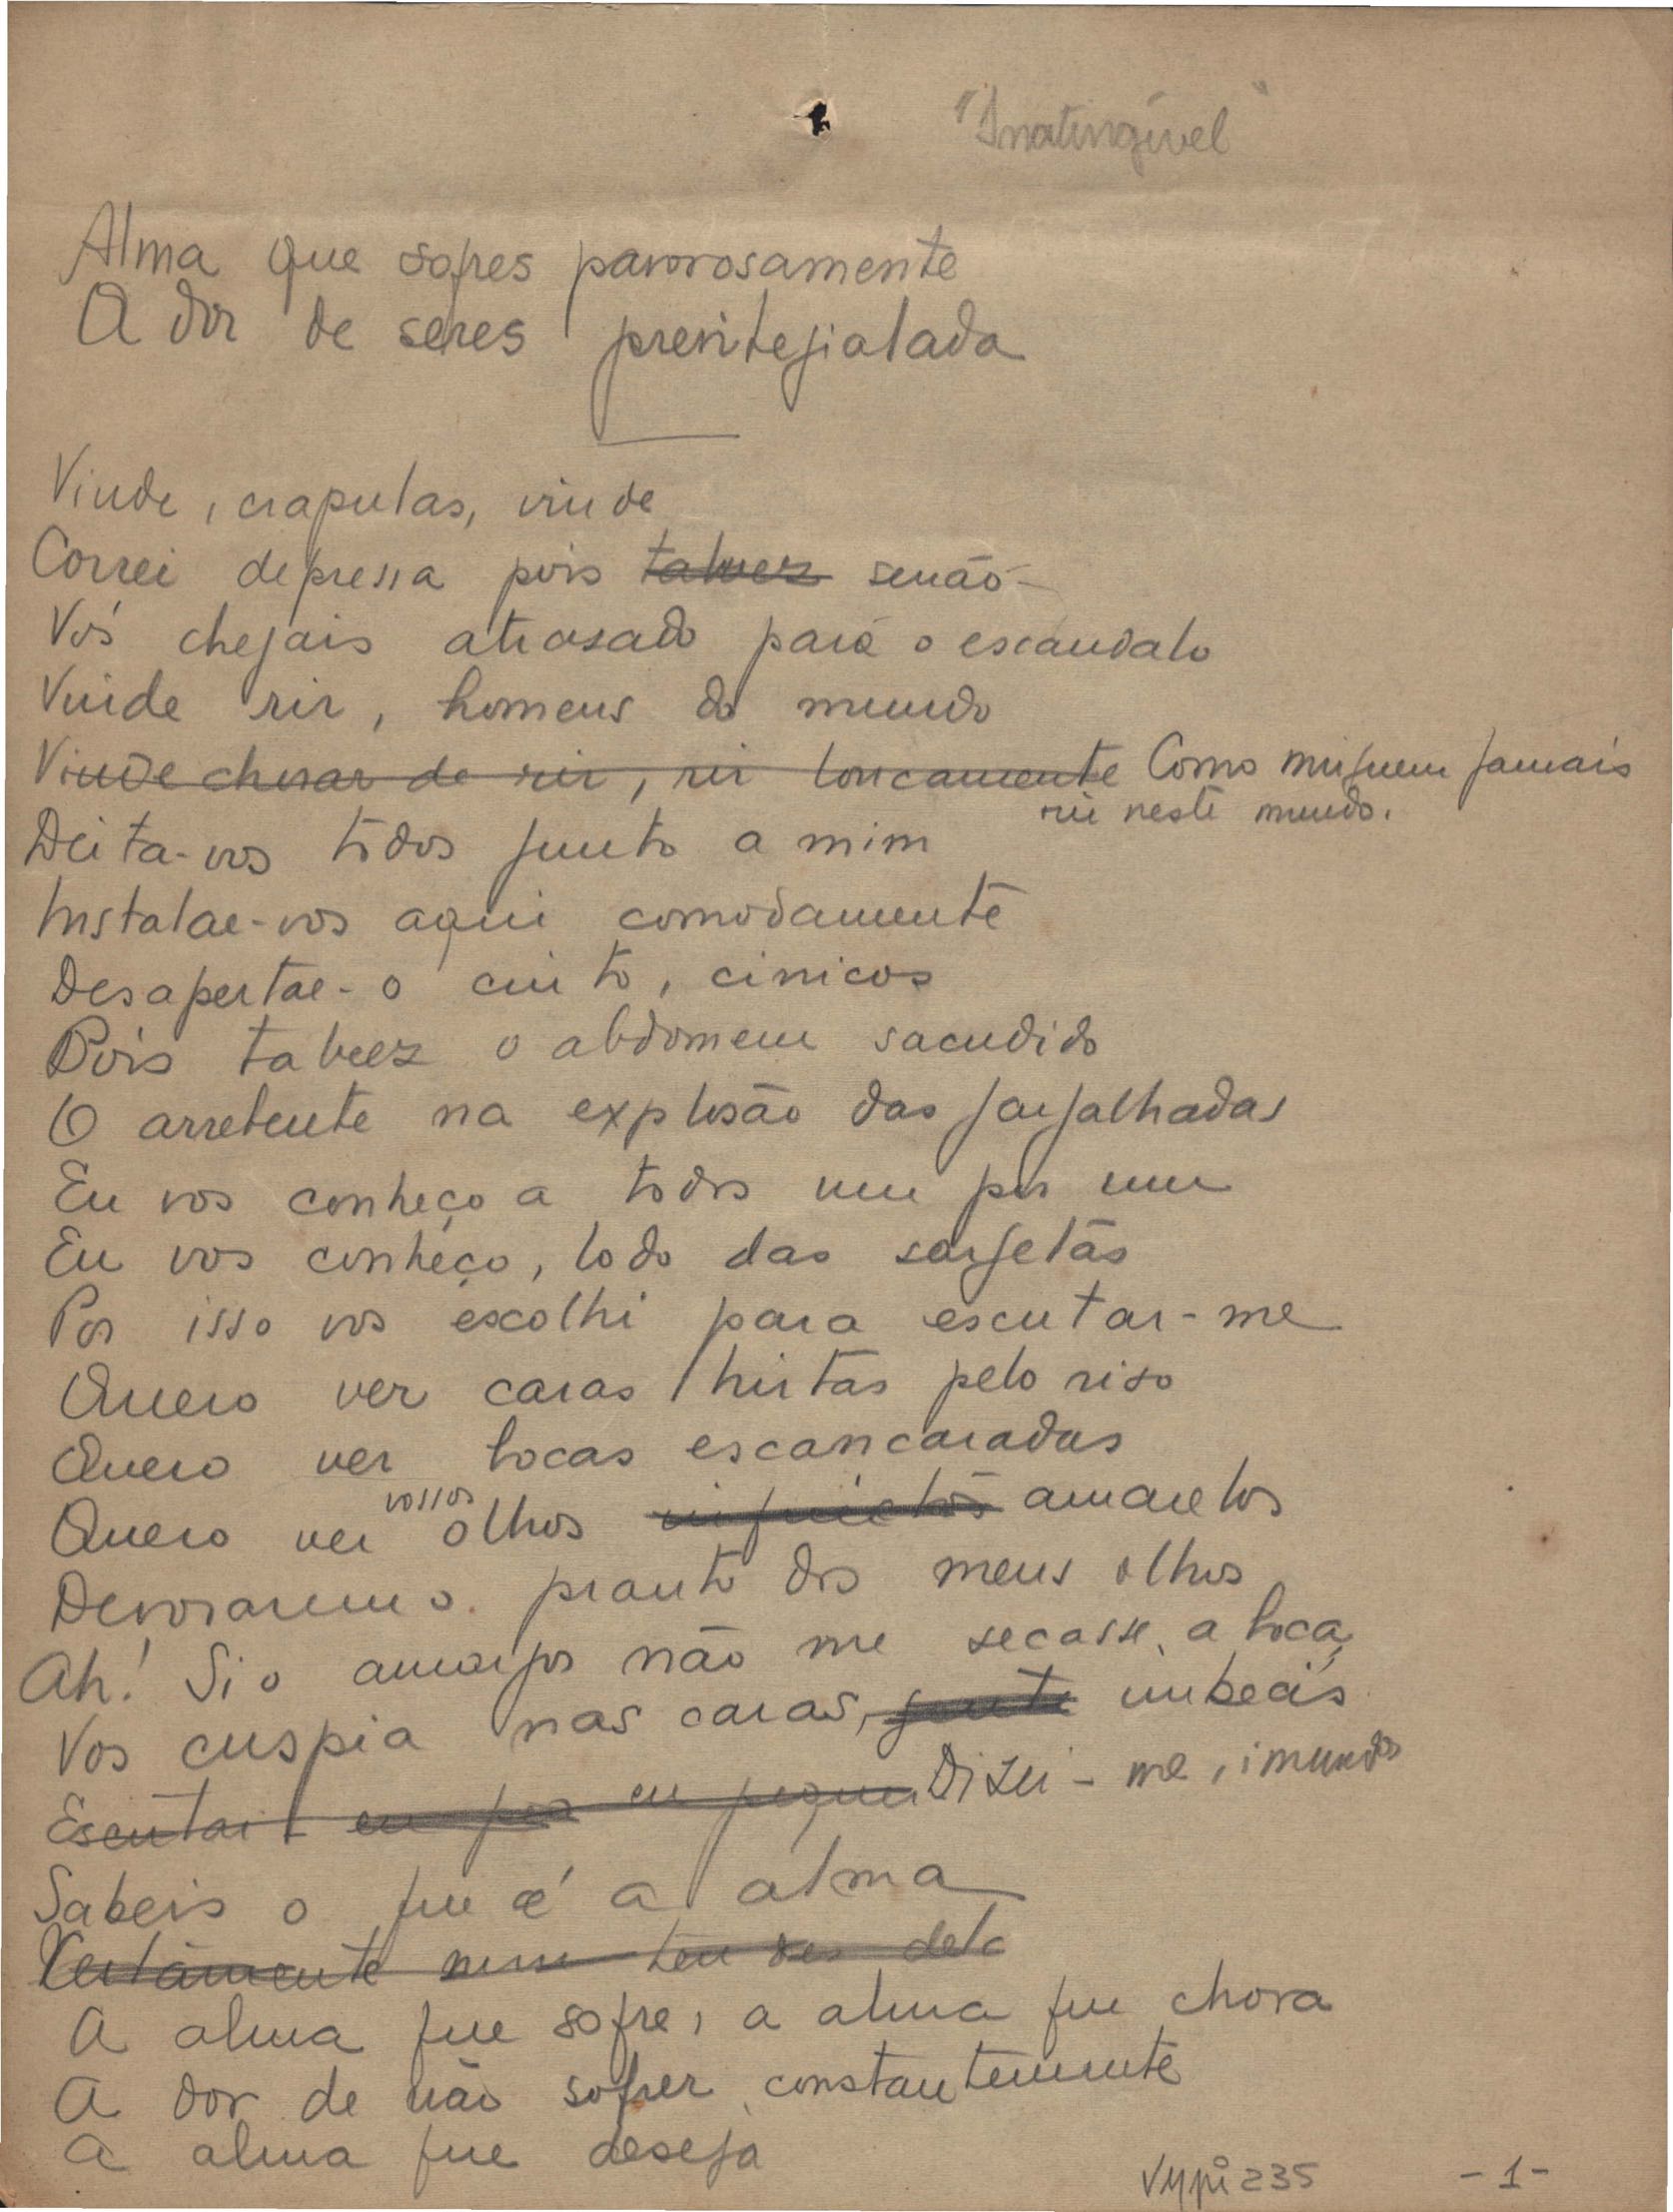 "Inatingível"
Alma que sofres pavorosamente
A dor de seres privilegialada
Vinde, crapulas, vinde
Correi depressa pois talvez senão
Vós chegais atrasado para o escandalo
Vinde rir, homens do mundo
Vinde chorar de rir, rir loucamente Como ninguem jamais
riu neste mundo.
Deita-vos todos junto a mim
Instalae-vos aqui comodamente
Desapertae-o cinto, cinicos
Pois talvez o abdomem sacudido
O arrebente na explosão das gargalhadas
Eu vos conheço a todos um por um
Eu vos conheço, lodo das sargetas
Por isso vos escolhi para escutar-me
Quero ver caras hirtas pelo riso
Quero ver bocas escancaradas
vossos
Quero ver olhos amarelos
Devorarem o pranto dos meus olhos
Ah! Si o amargor não me secasse a boca
Vos cuspia nas caras, gente imbecis
Escutai eu por eu Dizei-me, imundos
Sabeis o que é a alma
Certamente nem tendes dela
A alma que sofre, a alma que chora
A dor de não sofrer constantemente
A alma que deseja
VMpi235 -1-